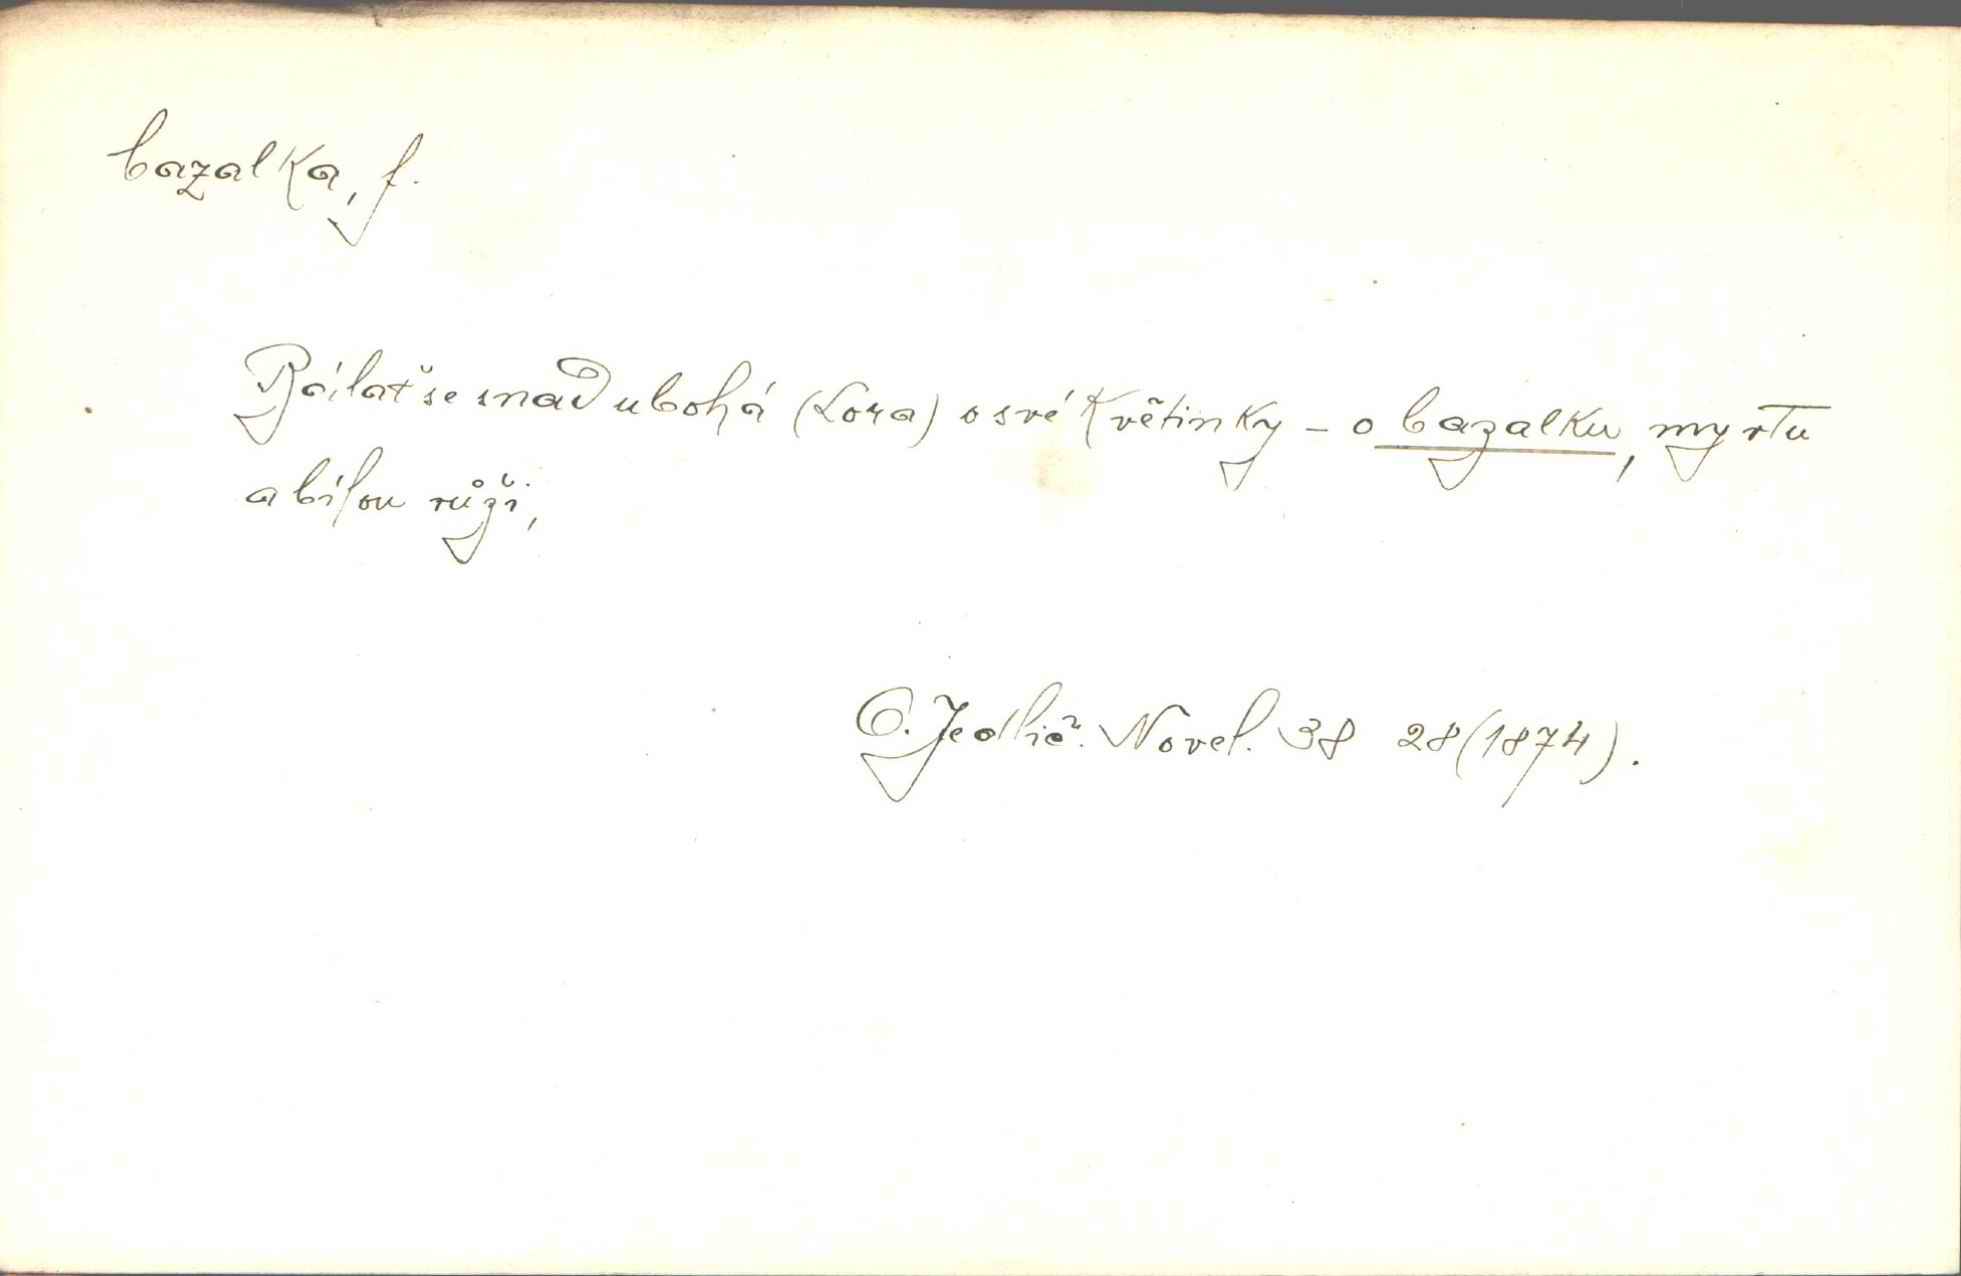 bazalka, f.
Bálať se snad ubohá (Lora) o své květinky – o bazalku, myrtu
a bílou růži,
O. Jedlič. Novel. 38 28 (1874).